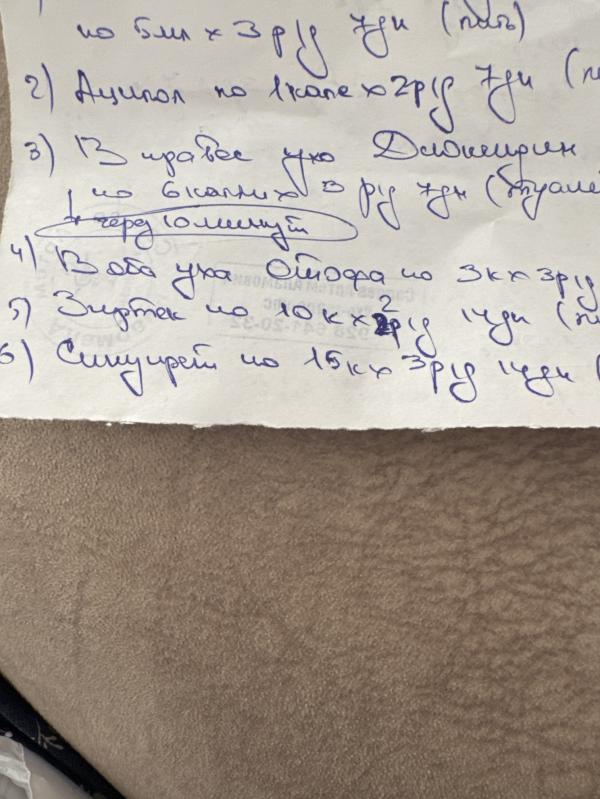 по 5мл х 3 р/д 7дн (пить)
2) Аципол по 1капс х 2р/д 7дн (п
3) В правое ухо Диоксидин
по 6капли х 3 р/д 7дн (туале
↓ через 10минут
4) В оба уха Отофа по 3к х 3р/д
5) Зиртек по 10к х 2р/д 14дн (п
6) Синупрет по 15к х 3р/д 14дн (